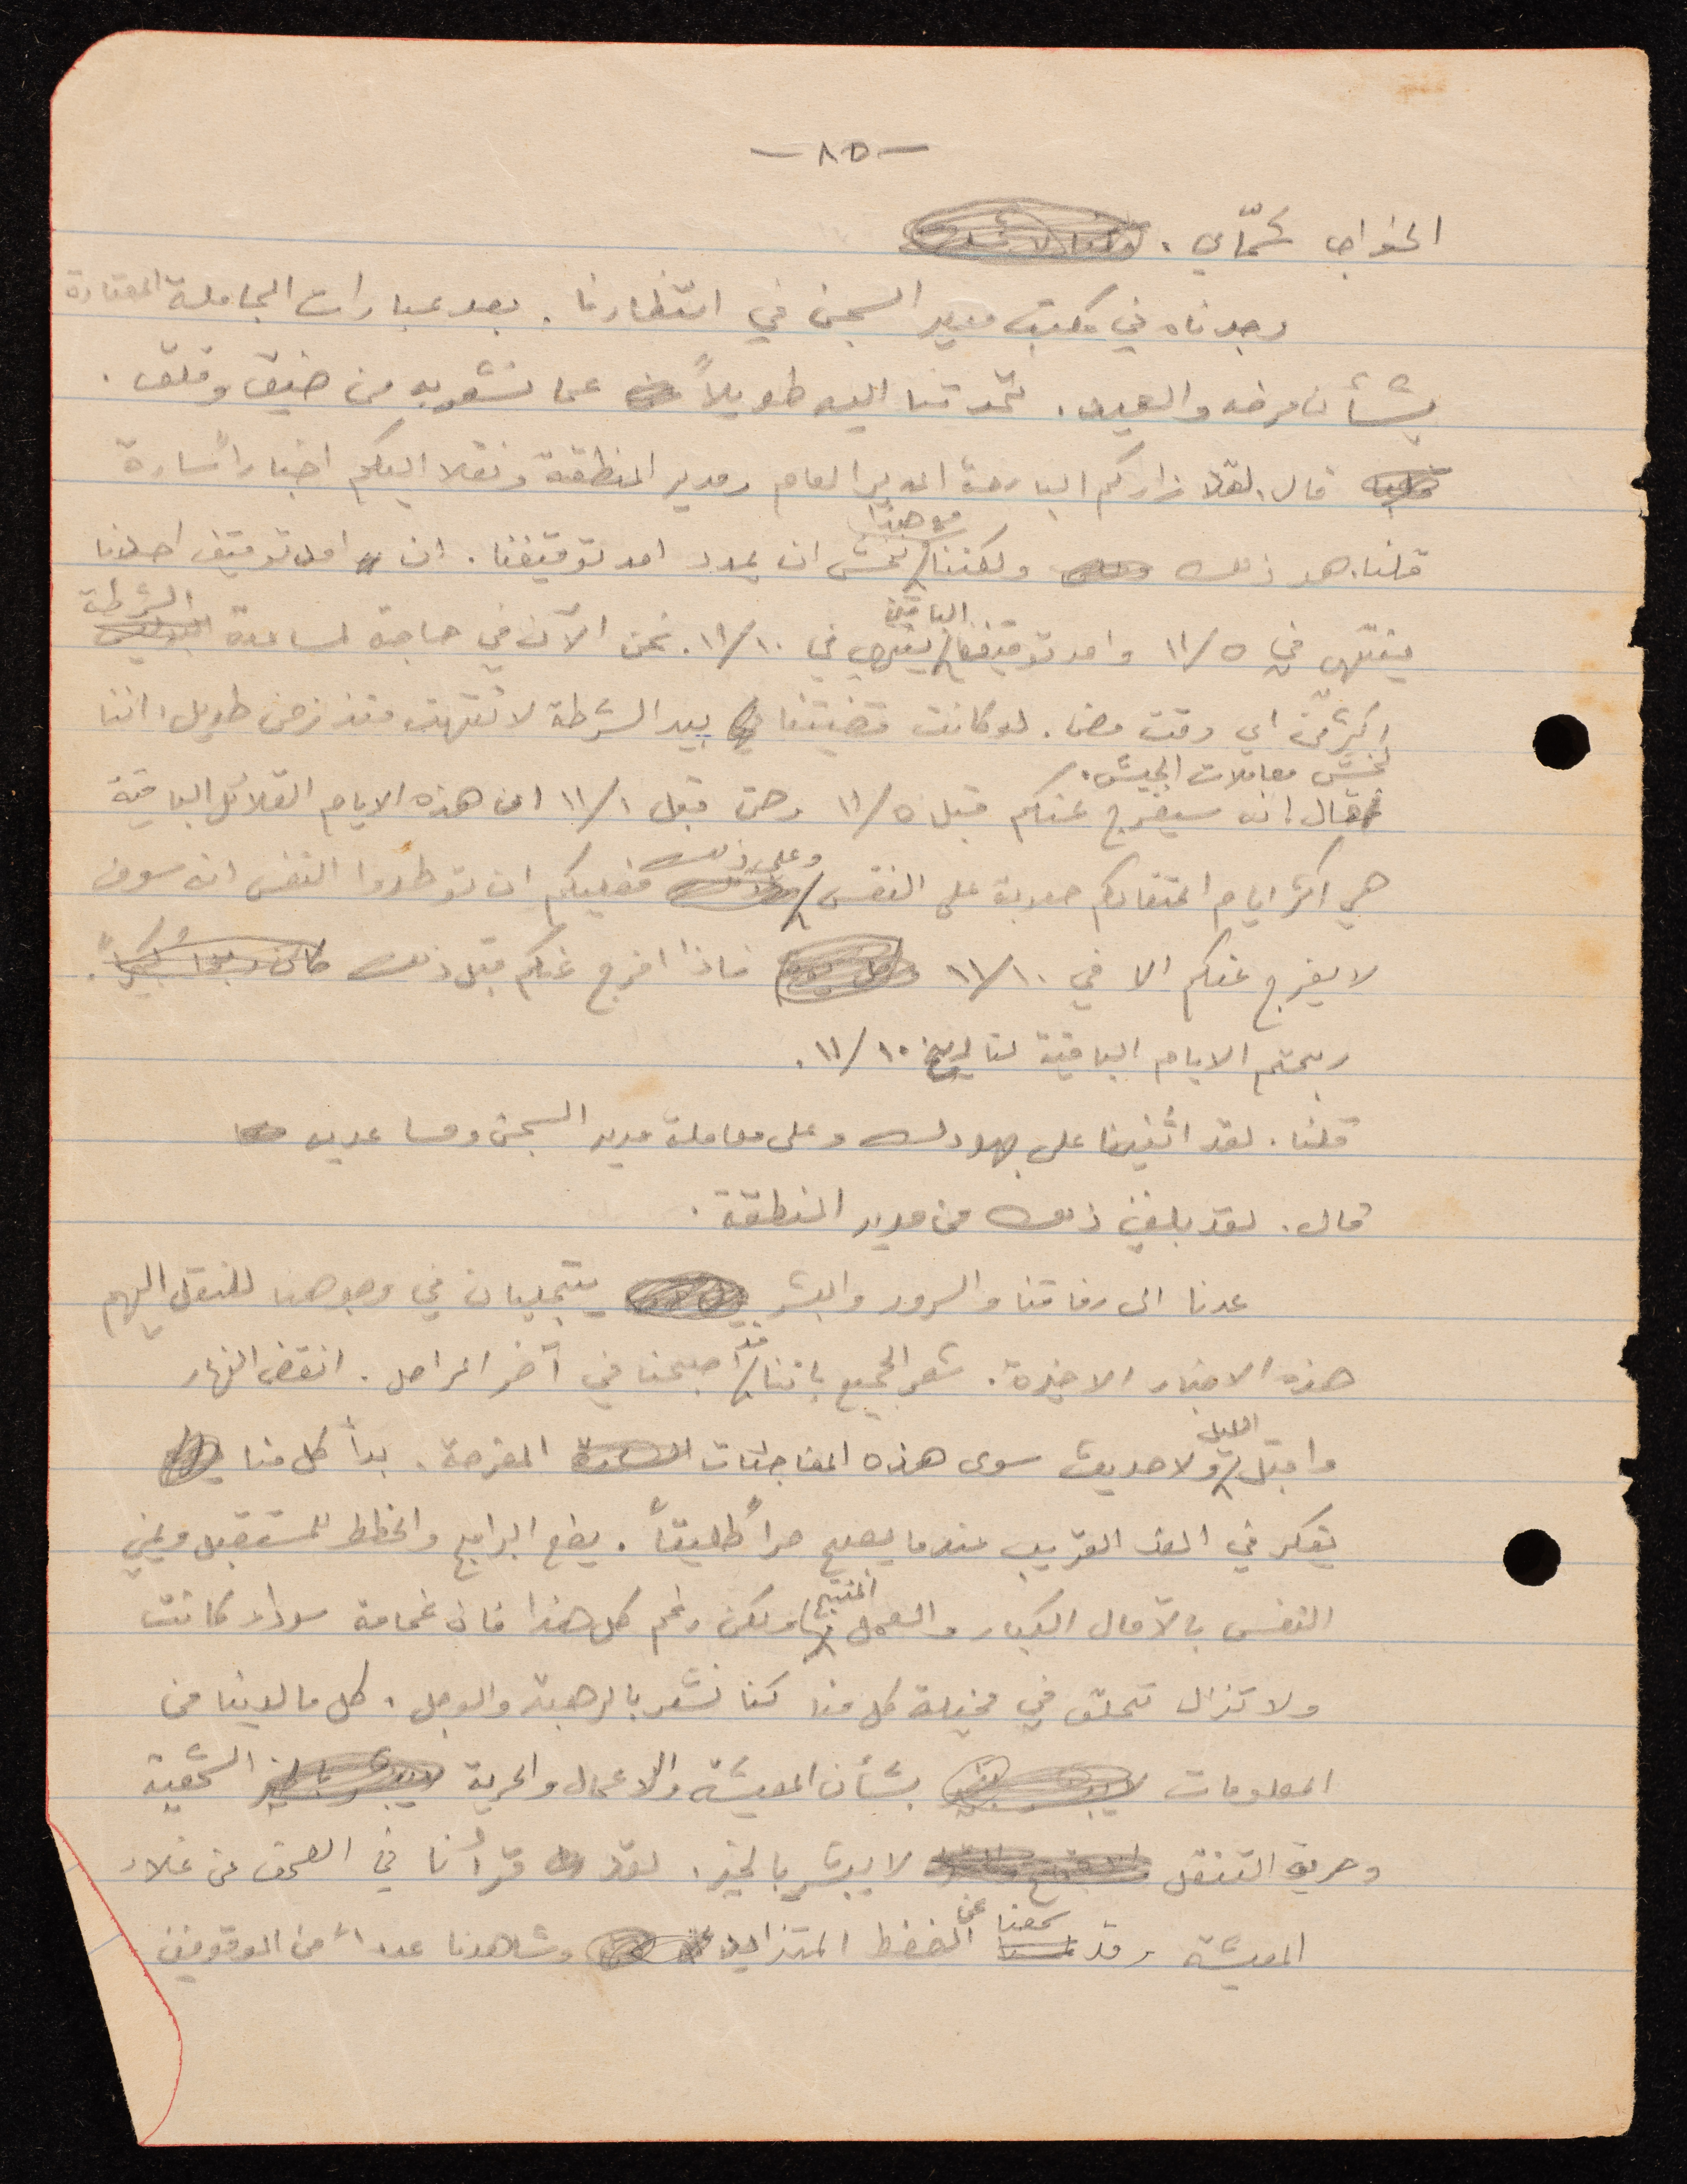 -٨٥-
الخواجا شمّاي.
وجدناه في مكتب مدير السجن في انتظارنا. بعد عبارات المجاملة المعتادة
بشأن مرضه والعيد. تحدثنا اليه طويلاً عما نشعر به من ضيق وقلق.
قال. لقد زاركم البارحة المدير العام ومدير المنطقة ونقلا اليكم اخباراً سارة
قلنا. هو ذلك ولكننا مع هذا نخشى ان يمدد امد توقيفنا. ان امد توقيف احدنا
ينتهي في ١١/٥ وامد توقيف الباقين ينتهي في ١١/١٠. نحن الآن في حاجة لمساعدة الشرطة
اكثر من اي وقت مضى. لو كانت قضيتنا بيد الشرطة لانتهت منذ زمن طويل، اننا
نخشى معاملات الجيش.
فقال انه سيفرج عنكم قبل ١١/٥ وحتى قبل ١١/١ ان هذه الايام القلائل الباقية
هي اكثر ايام اعتقالكم صعوبة على النفس وعلى ذلك فعليكم ان توطدوا النفس انه سوف
لا يفرج عنكم الا في ١١/١٠ فاذا افرج عنكم قبل ذلك كان ربحاً كبيراً.
ربحتم الايام الباقية لتاريخ ١١/١٠.
قلنا. لقد اثنينا على جهودك وعلى معاملة مدير السجن ومساعديه
قال. لقد بلغني ذلك من مدير المنطقة.
عدنا الى رفاقنا والسرور والبشر يتجليان في وجوهنا لننقل اليهم
هذه الاخبار الاخيرة. شعر الجميع باننا قد اصبحنا في آخر المراحل. انقضى النهار
واقبل الليل ولا حديث سوى هذه المفاجئات المفرحة. بدأ كل منا
يفكر في الغد القريب عندما يصبح حراً طليقاً. يضع البرامج والخطط للمستقبل ويمني
النفس بالآمال الكبار والعمل المنتج ولكن رغم كل هذا فان غمامة سوداء كانت
ولا تزال تحلق في مخيلة كل منا كنا نشعر بالرهبة والوجل. كل ما لدينا من
المعلومات بشأن المعيشة والاعمال والحرية الشخصية
وحرية التنقل لا يبشر بالخير. لقد قرأنا في الصحف عن غلاء
المعيشة وقد سمعنا عن الضغط المتزايد وشاهدنا عدداً من الموقوفين